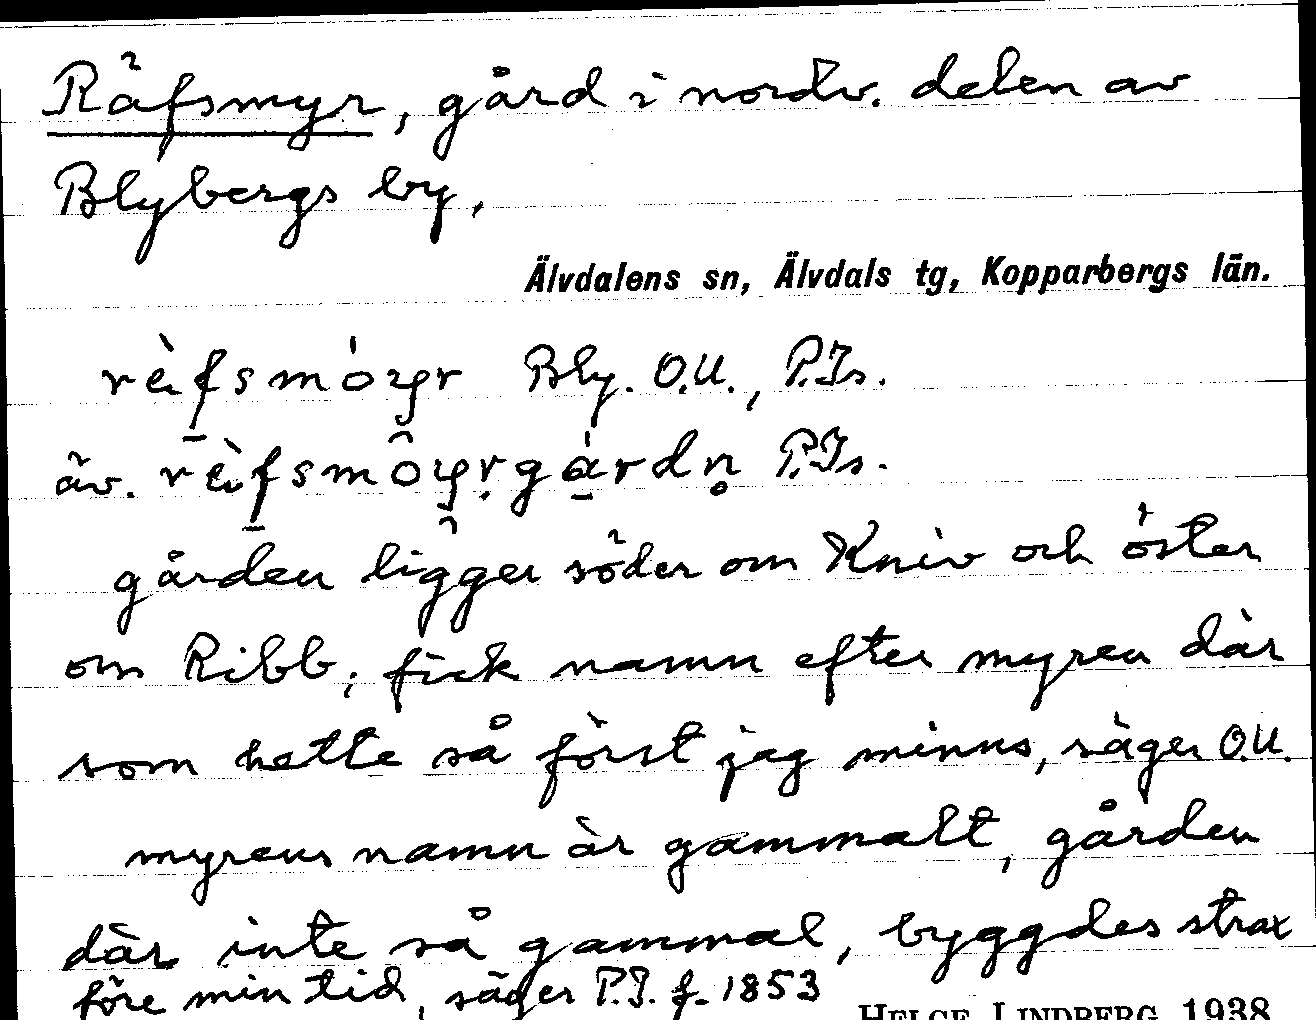 Räfsmyr, gård i nordv. delen av
Blybergs by,
Älvdalens sn, Älvdals tg, Kopparbergs län.
Bly. O.U., P.Js.
äv. P.Js.
gården ligger söder om Kniv och öster
om Ribb; fick namn efter myren där
som hette så först jag minns, säger O.U.
myrens namn är gammalt, gården
där inte så gammal, byggdes strax
före min tid, säger P.J. f. 1853
HELGE LINDBERG 1938